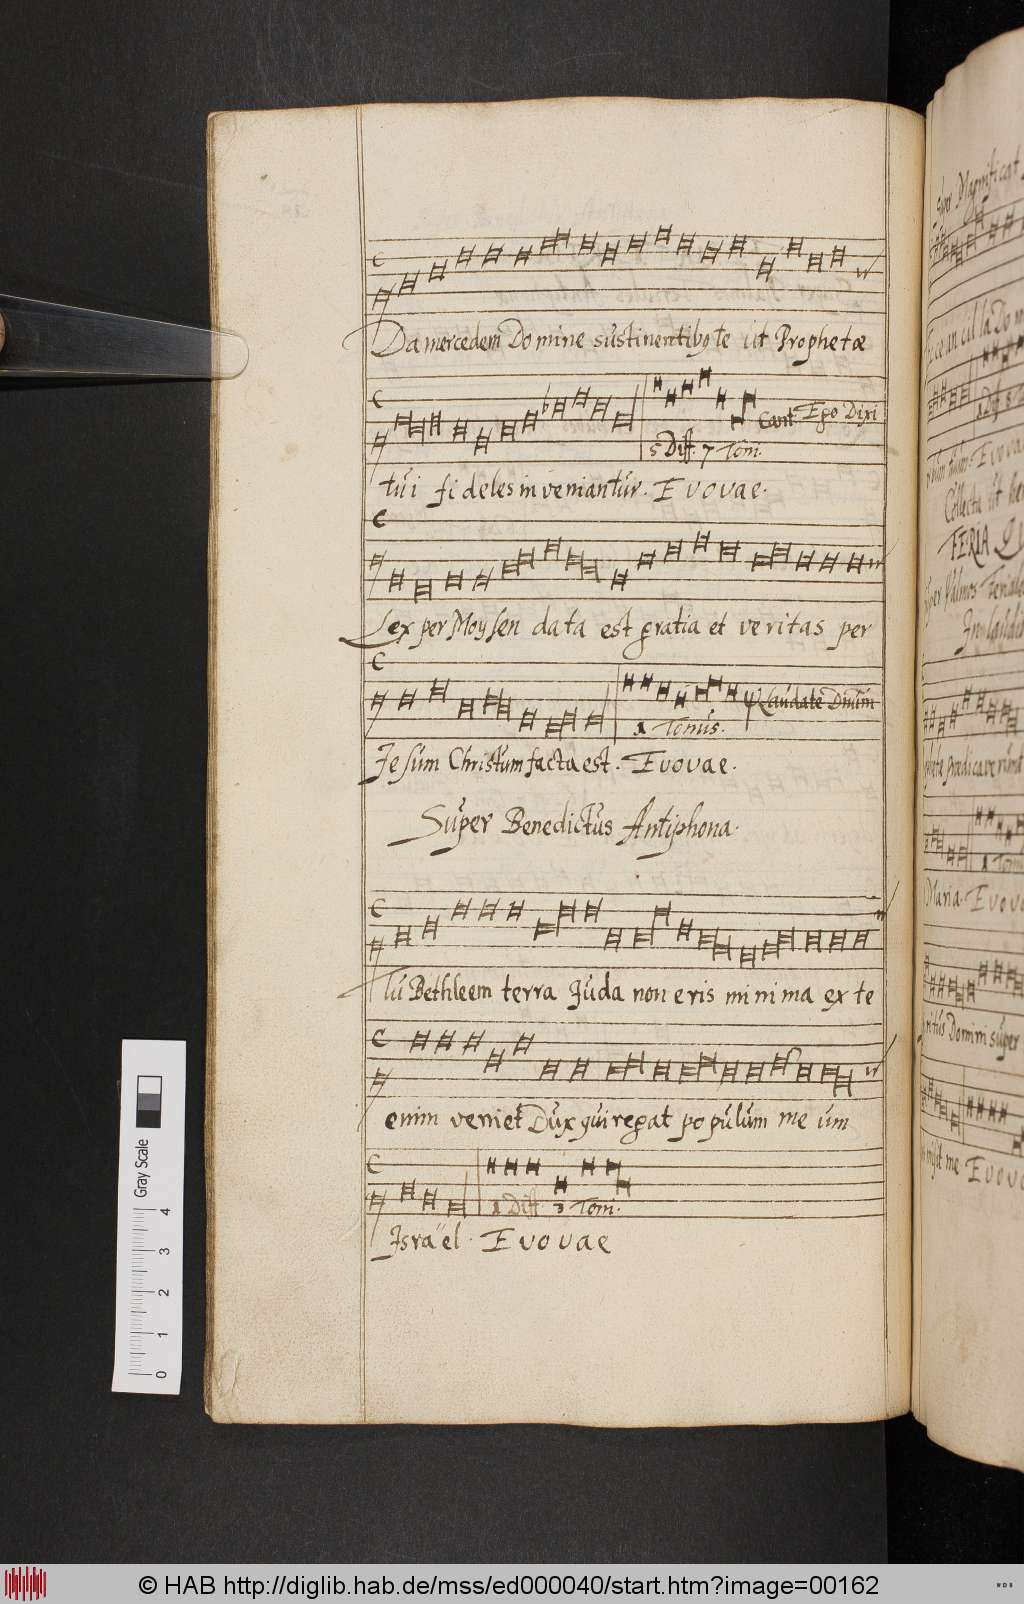 Da mercedem Domine sustinentibus te ut Prophetæ
Cant. Ego Dixi
5 Diff. 7 Toni.
tui fideles inveniantur. Evovae.
Lex per Moysen data est gratia et veritas per
Laudate Dnum
1 Tonus.
Jesum Christum facta est. Evovae.
Super Benedictus Antiphona.
Tu Bethleem terra Juda non eris minima ex te
enim veniet Dux qui regat populum meum
1 Diff. 3 Toni.
Israël. Evovae
Super Magnificat
Ecce ancilla Dom
Evovae
Collecta ut
FERIA
Super Psalmos
prædicaverunt
Maria. Evov
super
me Evov
Gray Scale
4
3
2
1
0
© HAB http://diglib.hab.de/mss/ed000040/start.htm?image=00162